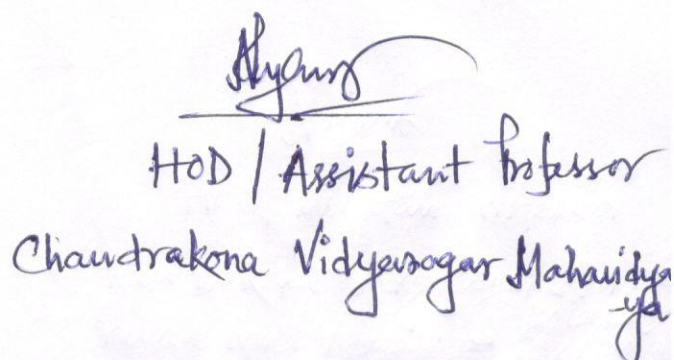 HOD / Assistant Professor
Chandrakona Vidyasagar Mahavidya
-ya